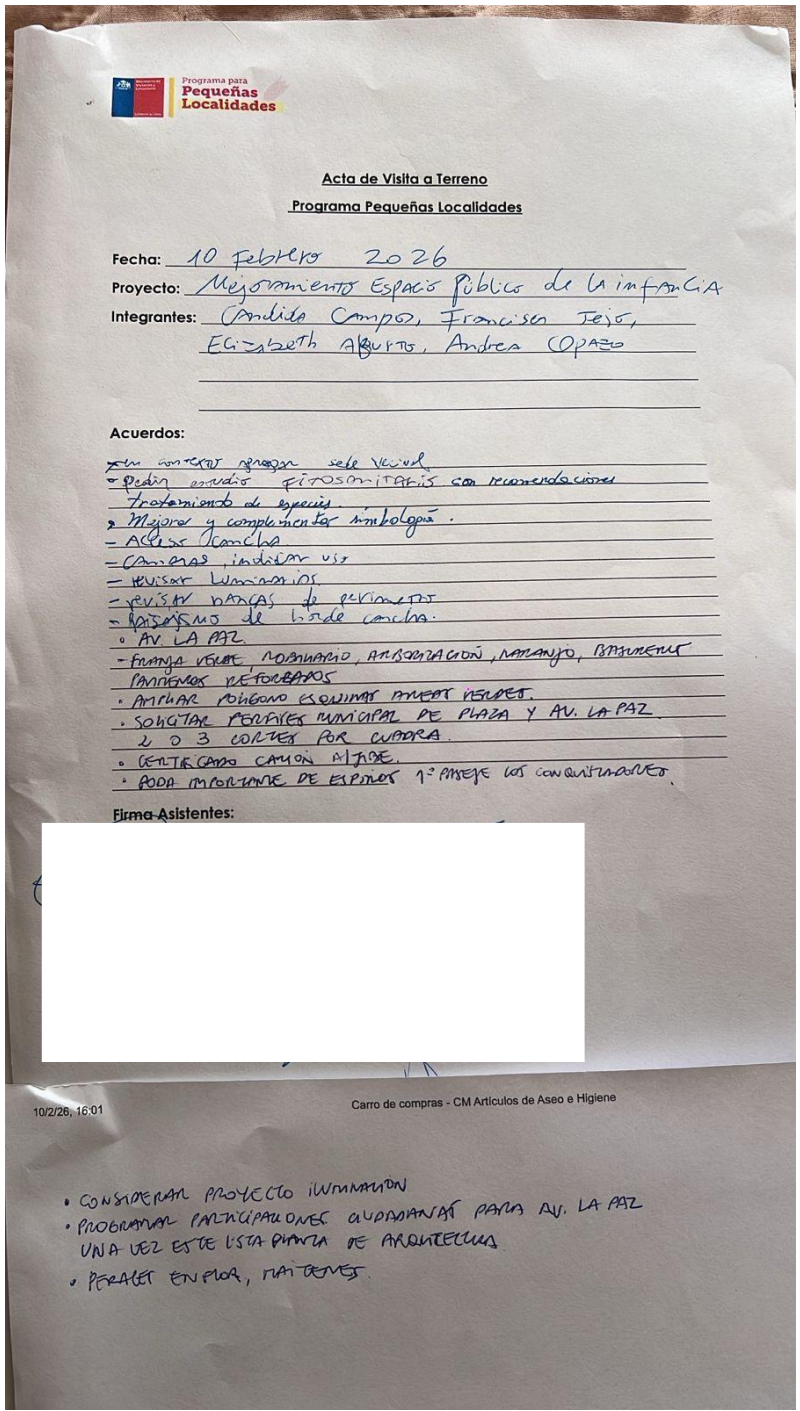 Programa para
Pequeñas
Localidades
Acta de Visita a Terreno
Programa Pequeñas Localidades
Fecha: 10 Febrero 2026
Proyecto: Mejoramiento Espacio Público de la infancia
Integrantes: Candida Campos, Francisca Tejo,
Elizabeth Aburto, Andrea Opazo
Acuerdos:
- en contexto agregar sede vecinal
- Pedir estudio fitosanitario con recomendaciones
tratamiento de especies.
Mejorar y complementar simbología.
- Acceso cancha
- Cámaras, indicar uso
- revisar luminarios
- revisar bancas de perimetro
- Paisajismo de borde cancha.
• AV. LA PAZ.
- FRANJA VERDE, MOBILIARIO, ARBORIZACIÓN, NARANJO, BASUREROS
REFORZADOS
• AMPLIAR POLIGONO ESQUINAS AREAS VERDES.
• SOLICITAR PERFILES MUNICIPAL DE PLAZA Y AV. LA PAZ
2 O 3 CORTES POR CUADRA.
• CERTIFICADO CAMIÓN ALJIBE.
• PODA IMPORTANTE DE ESPINOS 1º PASEJE LOS CONQUISTADORES.
Firma Asistentes:
10/2/26, 16:01
Carro de compras - CM Artículos de Aseo e Higiene
• CONSIDERAR PROYECTO ILUMINACIÓN
• PROGRAMAR PARTICIPACIONES CIUDADANAS PARA AV. LA PAZ
UNA VEZ ESTE LISTA PLANTA DE ARQUITECTURA
• PERALES EN FLOR, MAITENES.